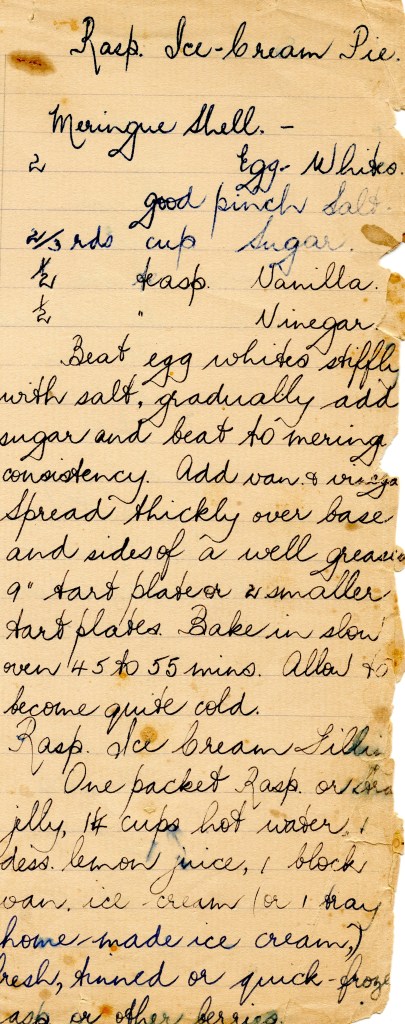 Rasp. Ice-Cream Pie.
Meringue Shell. -
2 Egg-Whites.
good pinch Salt.
2/3 rds cup Sugar.
1/2 teasp. Vanilla.
1/2 " Vinegar.
Beat egg whites stiffly
with salt, gradually add
sugar and beat to mering
consistency. Add van. & vinega
Spread thickly over base
and sides of a well greasin
9" tart plate or 2 smaller
tart plates. Bake in slow
oven 45 to 55 mins. Allow to
become quite cold.
Rasp. Ice Cream Filli
One packet Rasp. or
jelly, 1 1/4 cups hot water, 1
dess. lemon juice, 1 block
van. ice-cream (or 1 tray
home-made ice cream,)
fresh, tinned or quick-froze
asp or other berries